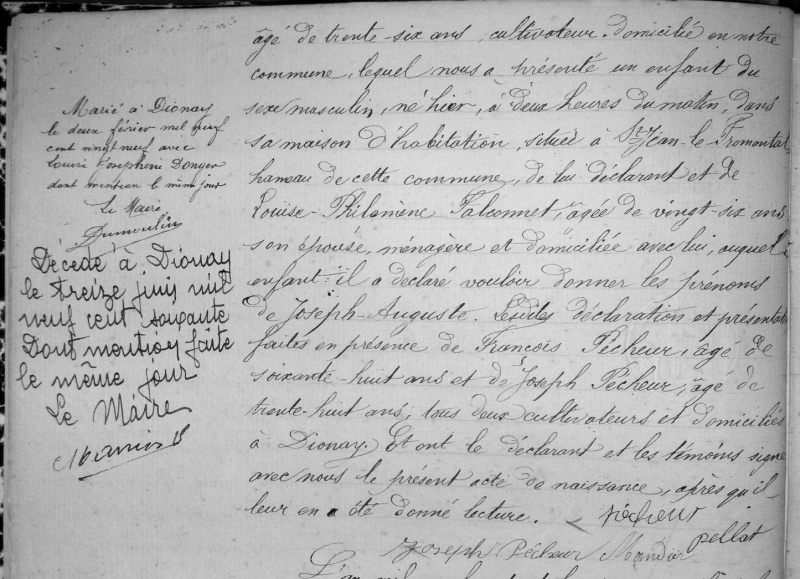 âgé de trente-six ans, cultivateur, domicilié en notre
commune, lequel nous a présenté un enfant du
sexe masculin, né hier, à deux heures du matin, dans
sa maison d'habitation, située à St Jean-le-Fromental,
hameau de cette commune, de lui déclarant et de
Louise-Philomène Falconnet, âgée de vingt-six ans
son épouse, ménagère et domiciliée avec lui, auquel
enfant il a déclaré vouloir donner les prénoms
de Joseph-Auguste. Lesdites déclaration et présentation
faites en présence de François Pécheur, âgé de
soixante-huit ans et de Joseph Pécheur, âgé de
trente-huit ans, tous deux cultivateurs et domiciliés
à Dionay. Et ont le déclarant et les témoins signé
avec nous le présent acte de naissance, après qu'il
leur en a été donné lecture.
pécheur
pellat
Joseph Pécheur
Marié à Dionay
le deux février mil neuf
cent vingt neuf avec
Louise Joséphine Donger
dont mention le même jour
Le Maire
Dumoulin
Décédé à Dionay
le treize juin mil
neuf cent soixante
Dont mention faite
le même jour
Le Maire